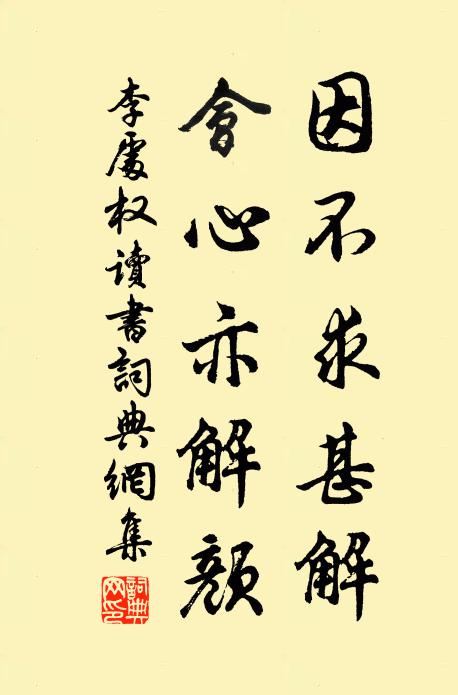 因不求甚解
會心亦解顏
李處权讀書詞典網集
詞典